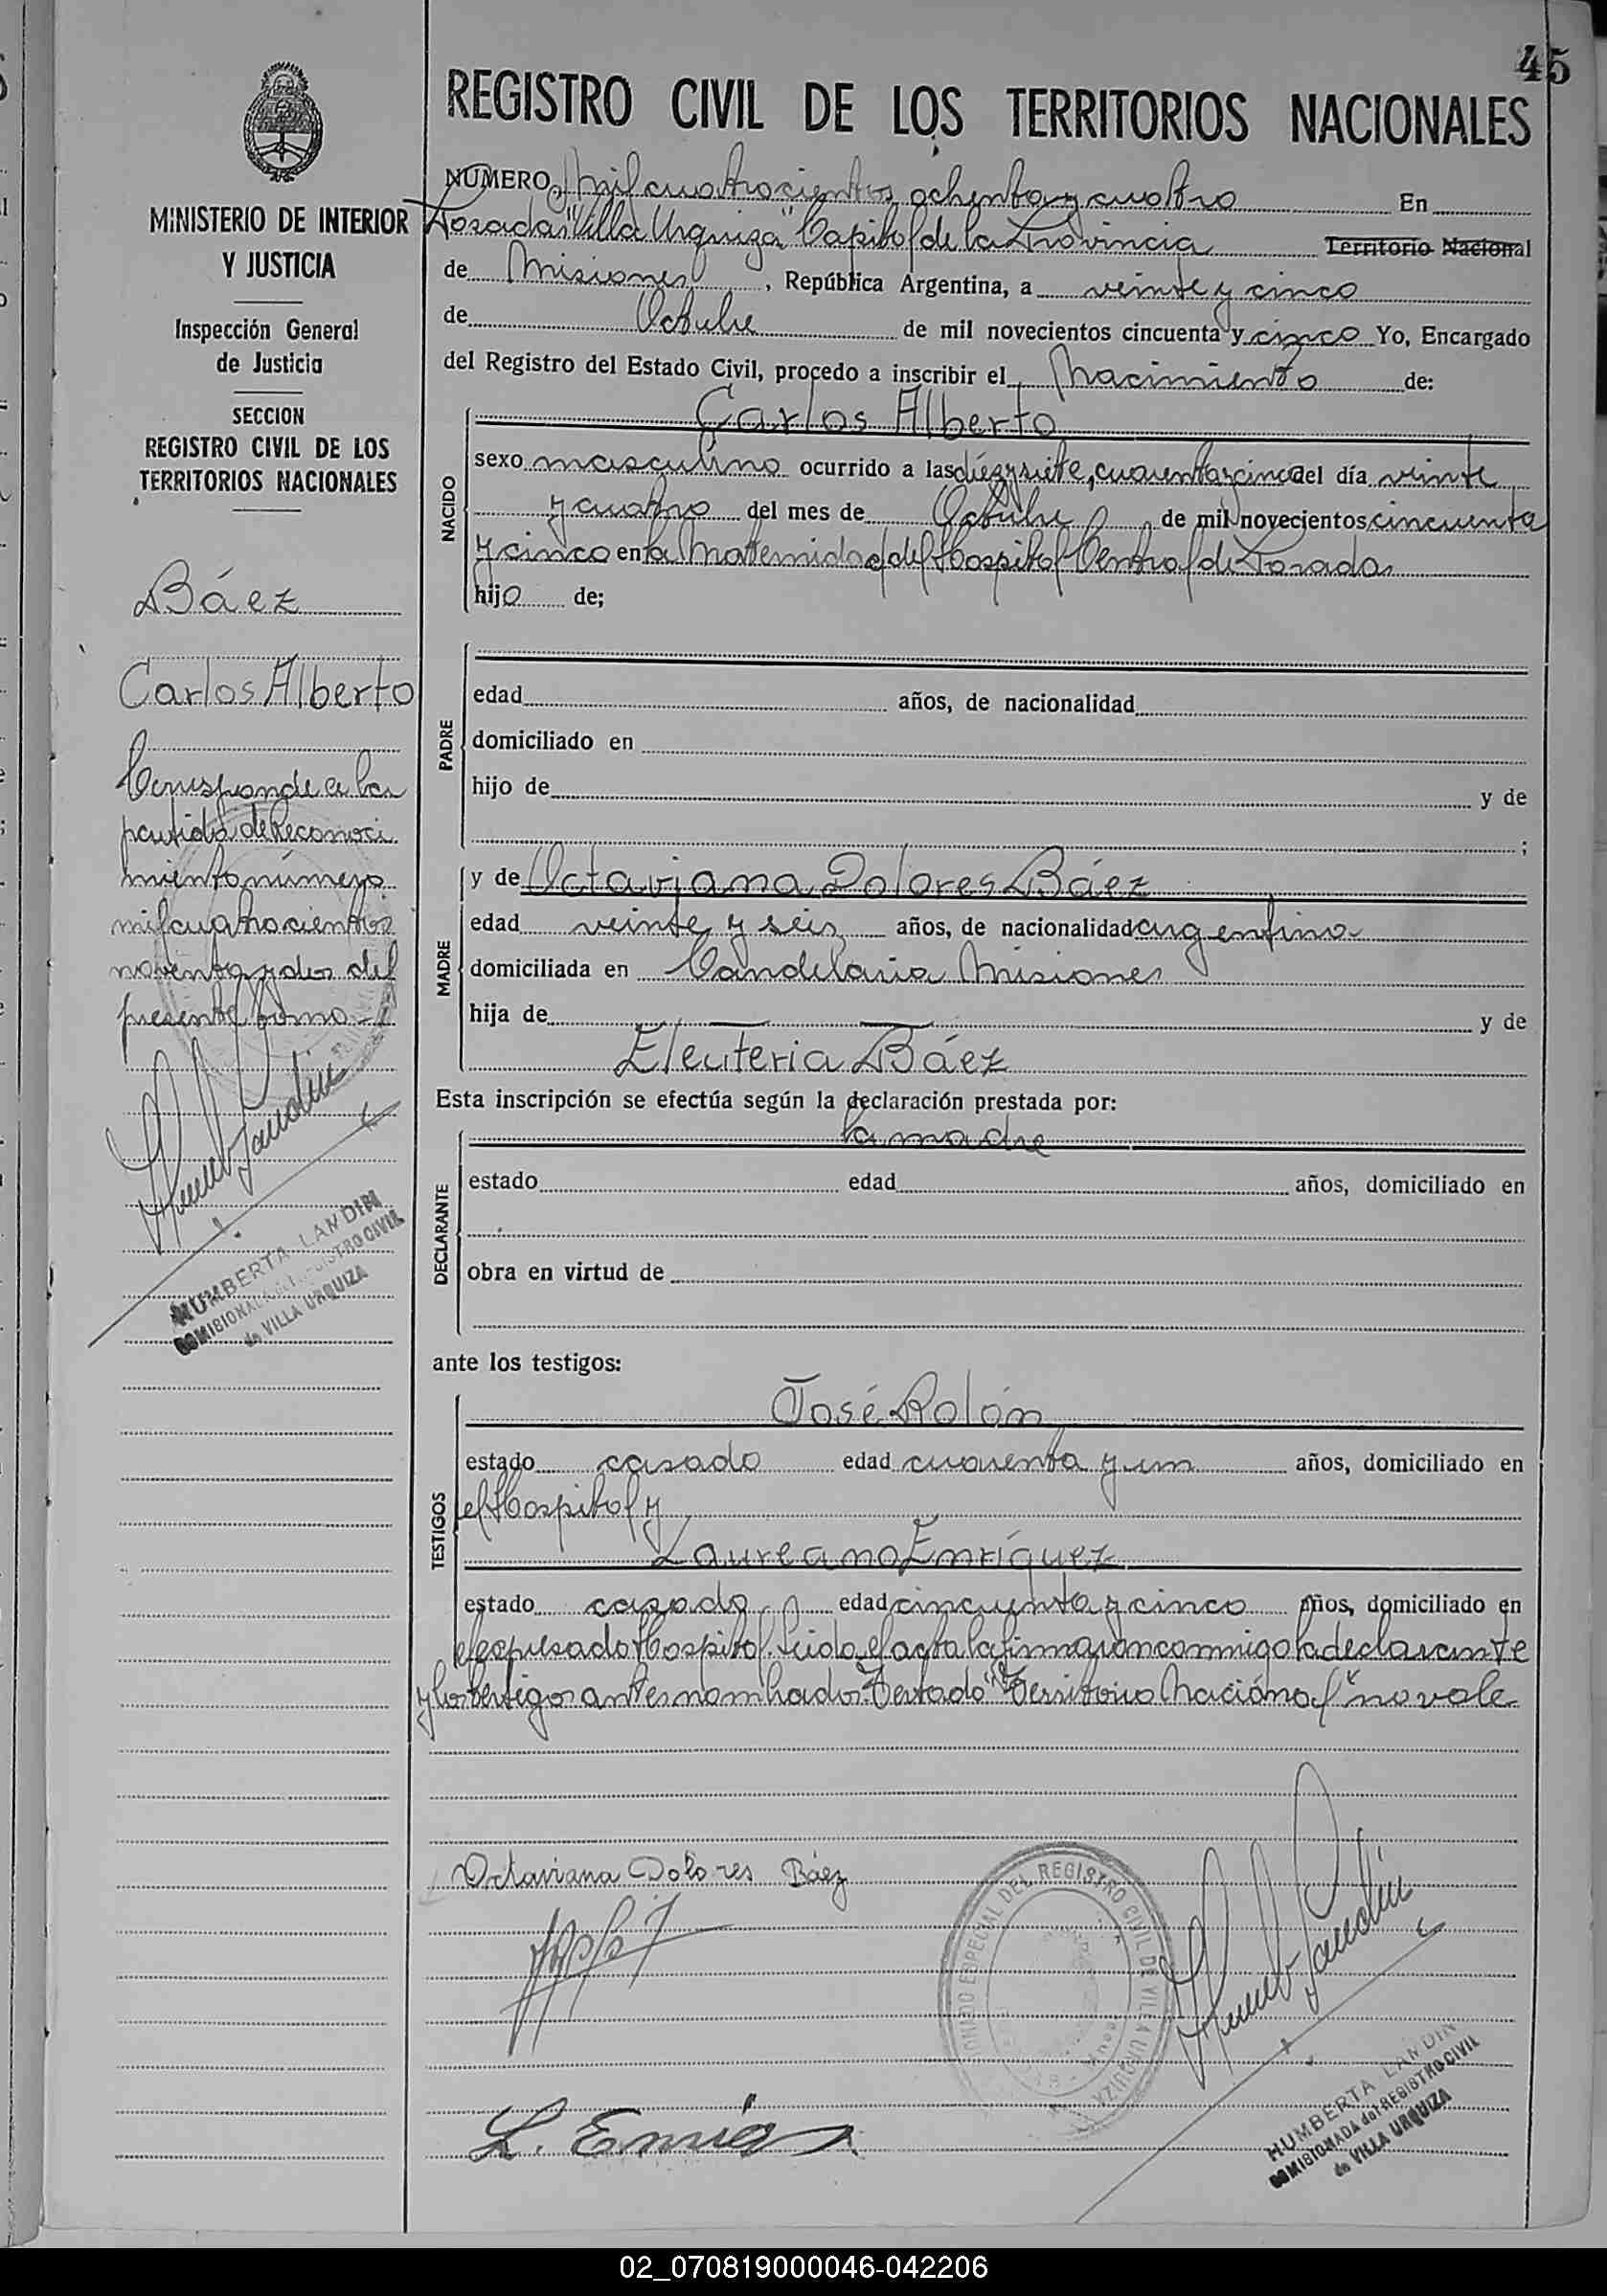 45
REGISTRO CIVIL DE LOS TERRITORIOS NACIONALES
MINISTERIO DE INTERIOR
Y JUSTICIA
Inspección General
de Justicia
SECCION
REGISTRO CIVIL DE LOS
TERRITORIOS NACIONALES
Báez
Carlos Alberto
Corresponde a la
partida de Reconoci
miento número
mil cuatrocientos
noventa y dos del
presente tomo.-
HUMBERTA LANDIN
COMISIONADA del REGISTRO CIVIL
de VILLA URQUIZA
NUMERO mil cuatrocientos ochenta y cuatro En
Posadas "Villa Urquiza" Capital de la Provincia Territorio Nacional
de Misiones, República Argentina, a veinte y cinco
de Octubre de mil novecientos cincuenta y cinco Yo, Encargado
del Registro del Estado Civil, procedo a inscribir el Nacimiento de:
NACIDO
Carlos Alberto
sexo masculino ocurrido a las diez y siete, cuarenta y cinco del día veinte
y cuatro del mes de Octubre de mil novecientos cincuenta
y cinco en la Maternidad del Hospital Central de Posadas
hijo de;
PADRE
edad años, de nacionalidad
domiciliado en
hijo de y de
;
MADRE
y de Octaviana Dolores Báez
edad veinte y seis años, de nacionalidad argentina
domiciliada en Candelaria Misiones
hija de y de
Eleuteria Báez
Esta inscripción se efectúa según la declaración prestada por:
DECLARANTE
la madre
estado edad años, domiciliado en
obra en virtud de
ante los testigos:
TESTIGOS
José Rolón
estado casado edad cuarenta y un años, domiciliado en
el Hospital y
Laureano Enríquez
estado casado edad cincuenta y cinco años, domiciliado en
el expresado Hospital. Leida el acta la firmaron conmigo la declarante
y los testigos antes nombrados. Testado "Territorio Nacional" no vale
Octaviana Dolores Báez
L. Enriq
DEL REGISTRO CIVIL DE VILLA URQUIZA
HUMBERTA LANDIN
COMISIONADA del REGISTRO CIVIL
de VILLA URQUIZA
02_070819000046-042206